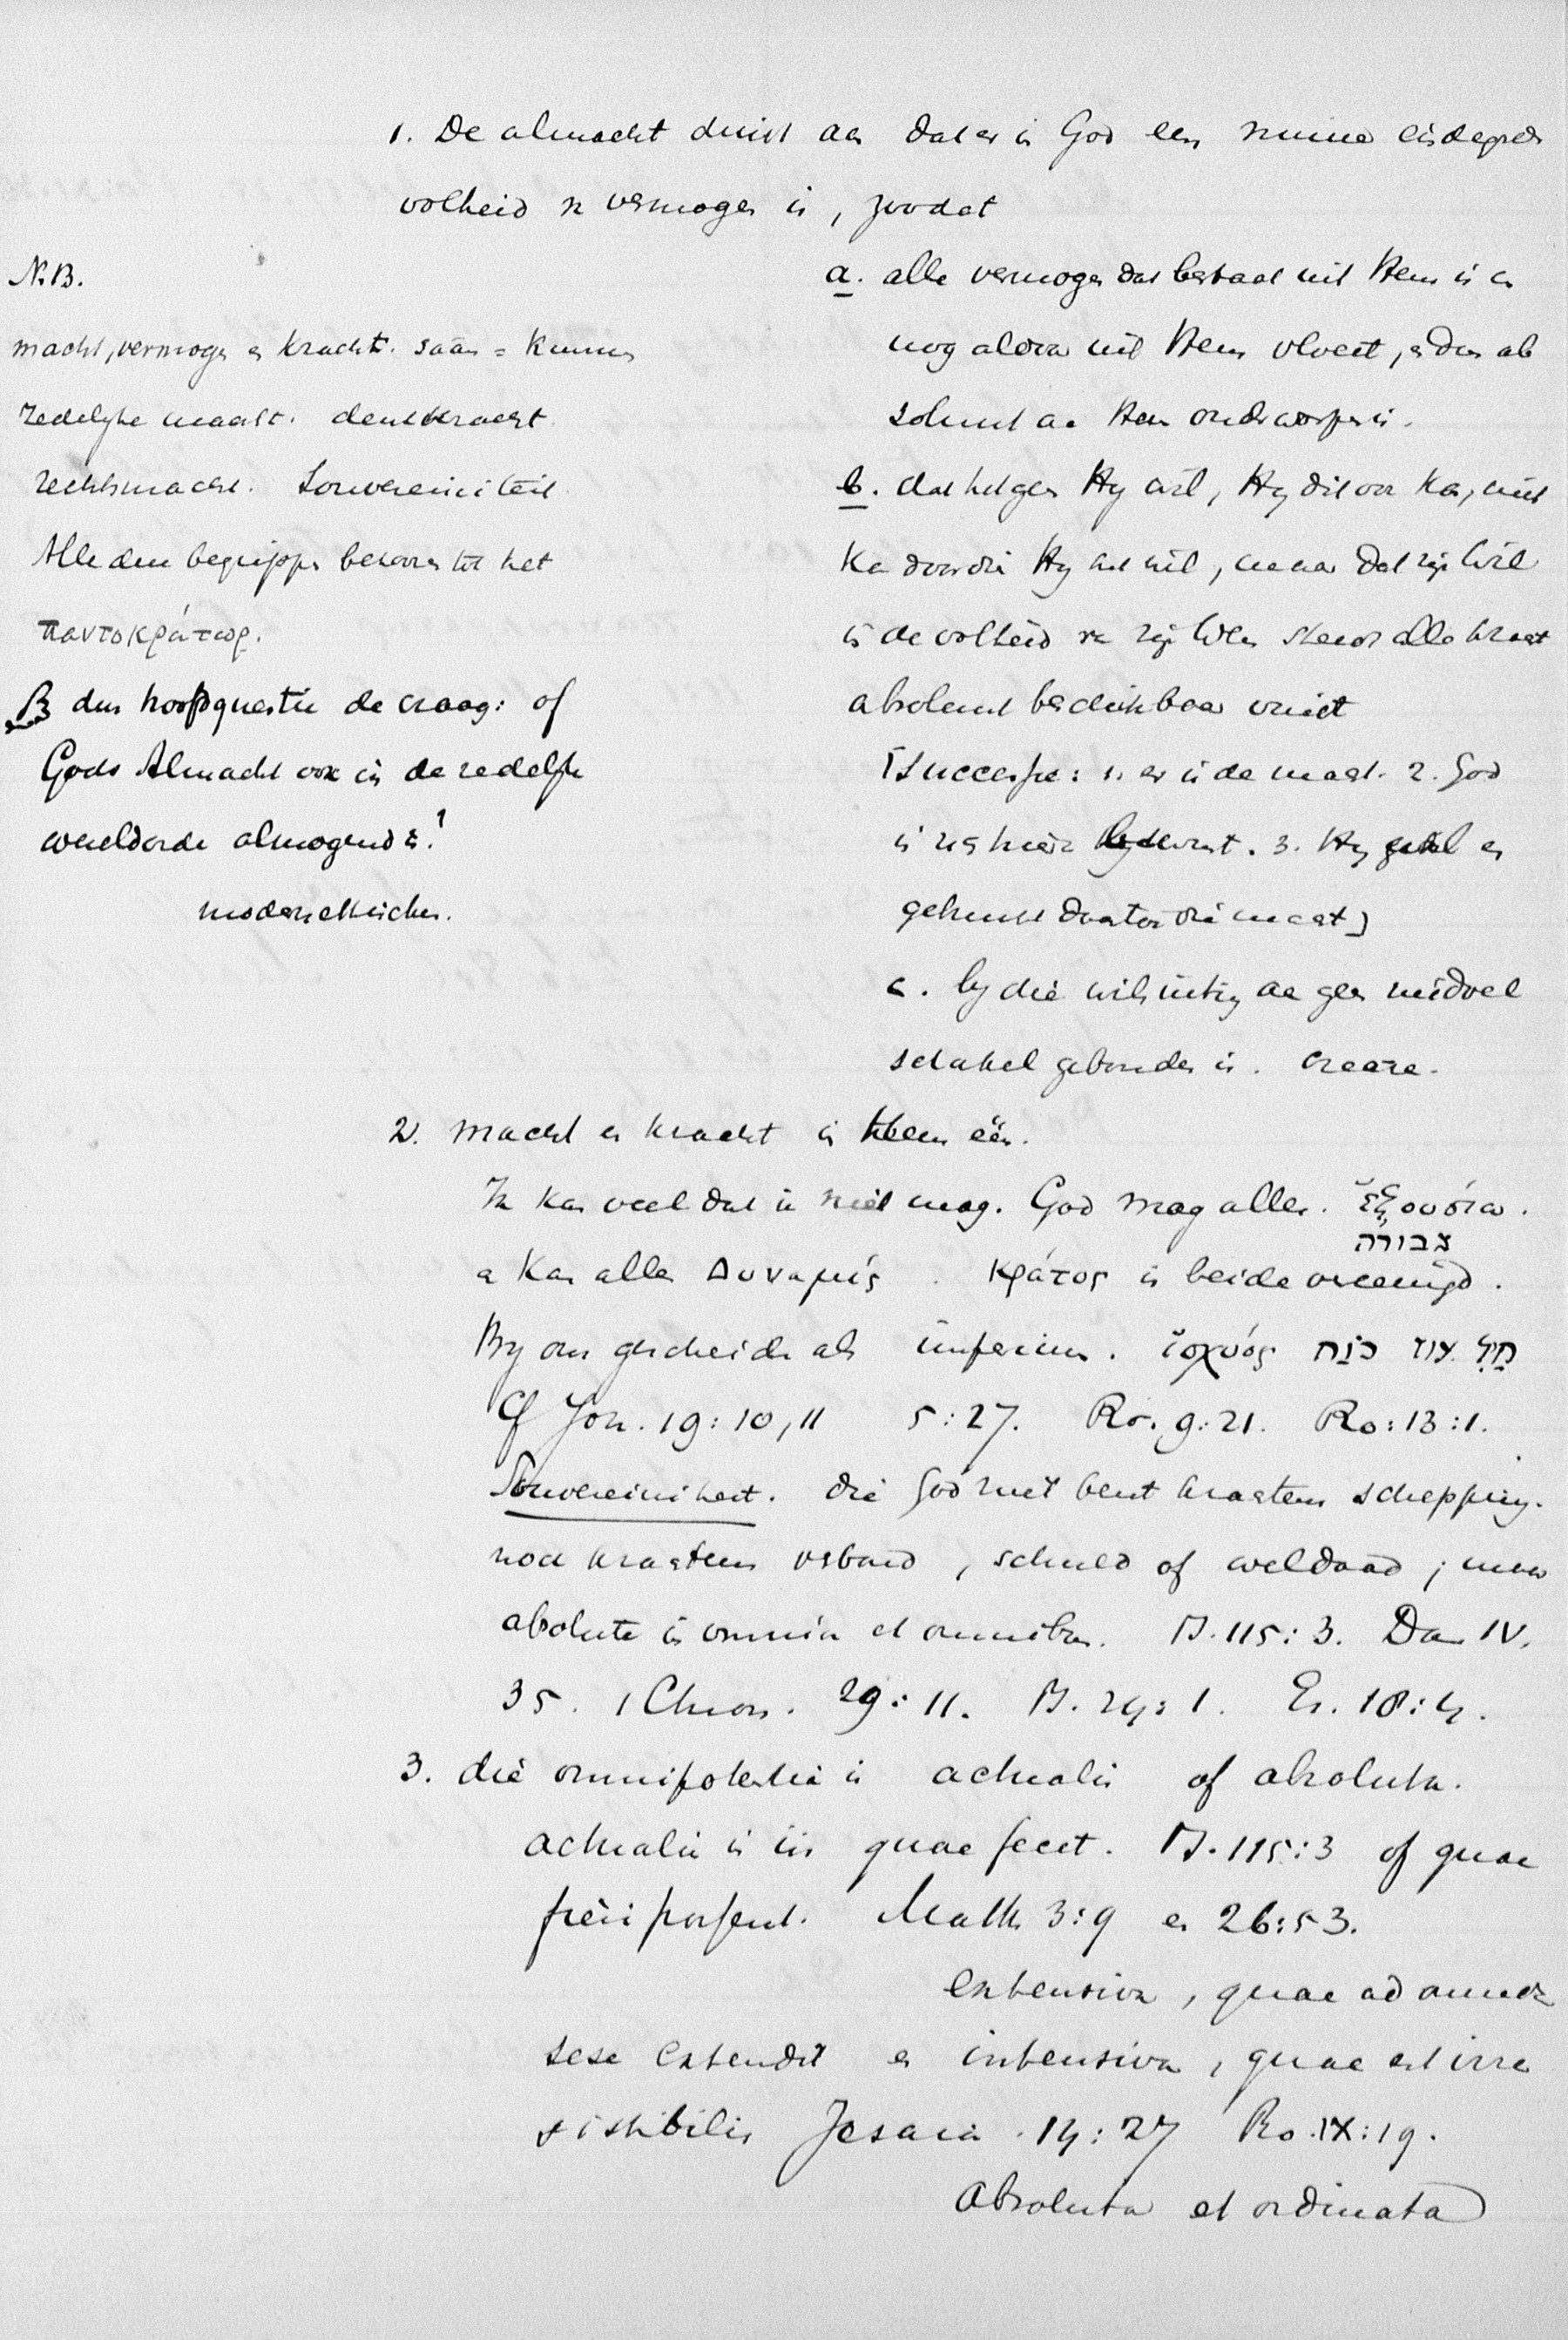 1. De almacht duidt aan dat er in God een ruime
volheid van vermogen is, zoodat
a. alle vermogen dat bestaat uit Hem is en
nog aldoor uit Hem vloeit, en dus ab
soluut aan Hem onderworpen is.
b. dat hetgeen Hy wil, Hy dit ook kan, niet
kan doordien Hy het wil, maar dat zijn Wil
is de volheid van zijn Wezen steeds alle kracht
absoluut beschikbaar vindt
[Successie: 1. er is de macht. 2. God
is zich hiervan bewust. 3. Hy wil en
gebruikt daartoe die macht]
c. by die wilsuiting aan geen middel
schakel gebonden is. creare.
N.B.
macht, vermogen en kracht. = kunnen
zedelyke macht. denkkracht
rechtsmacht. Souvereiniteit
Alle deze begrippen behooren tot het
παντοκράτωρ.
B dus hoofdquestie de vraag: of
Gods Almacht ook in de zedelyke
wereldorde almogend is!
modernethischen.
2. macht en kracht is Hem één.
Ik kan veel dat ik niet mag. God mag alles. ἐξουσία.
גבורה
en kan alles δυναμίς. κράτος is beide vereenigd.
By ons gescheiden als imperium. ἰσχύός כֹּחַ עוז חַיִל
Cf Joh. 19:10,11 5:27. Ro. 9:21. Ro:13:1.
Souvereiniteit. die God niet bezit krachtens schepping.
noch krachtens verbond, schuld of weldaad; maar
absolute in omnia et omnibus. Ps. 115:3. Dan IV.
35. 1 Chron. 29:11. Ps. 24:1. Ez. 18:4.
3. die omnipotentia is actualis of absoluta.
actualis in iis quae fecit. Ps. 115:3 of quae
fieri possent. Matth 3:9 en 26:53.
extensiva, quae ad omnia
sese extendit en intensiva, quae est irre
sistibilis Jesaia 14:27 Ro. IX:19.
Absoluta et ordinata